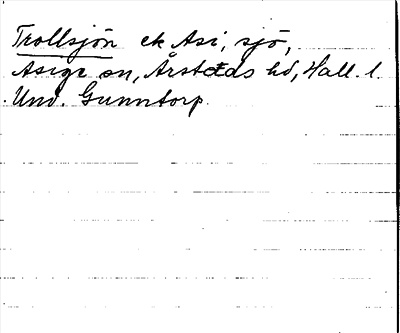 Trollsjön ek Asi, sjö,
Asige sn, Årstads hd, Hall. l.
Und. Gunntorp.